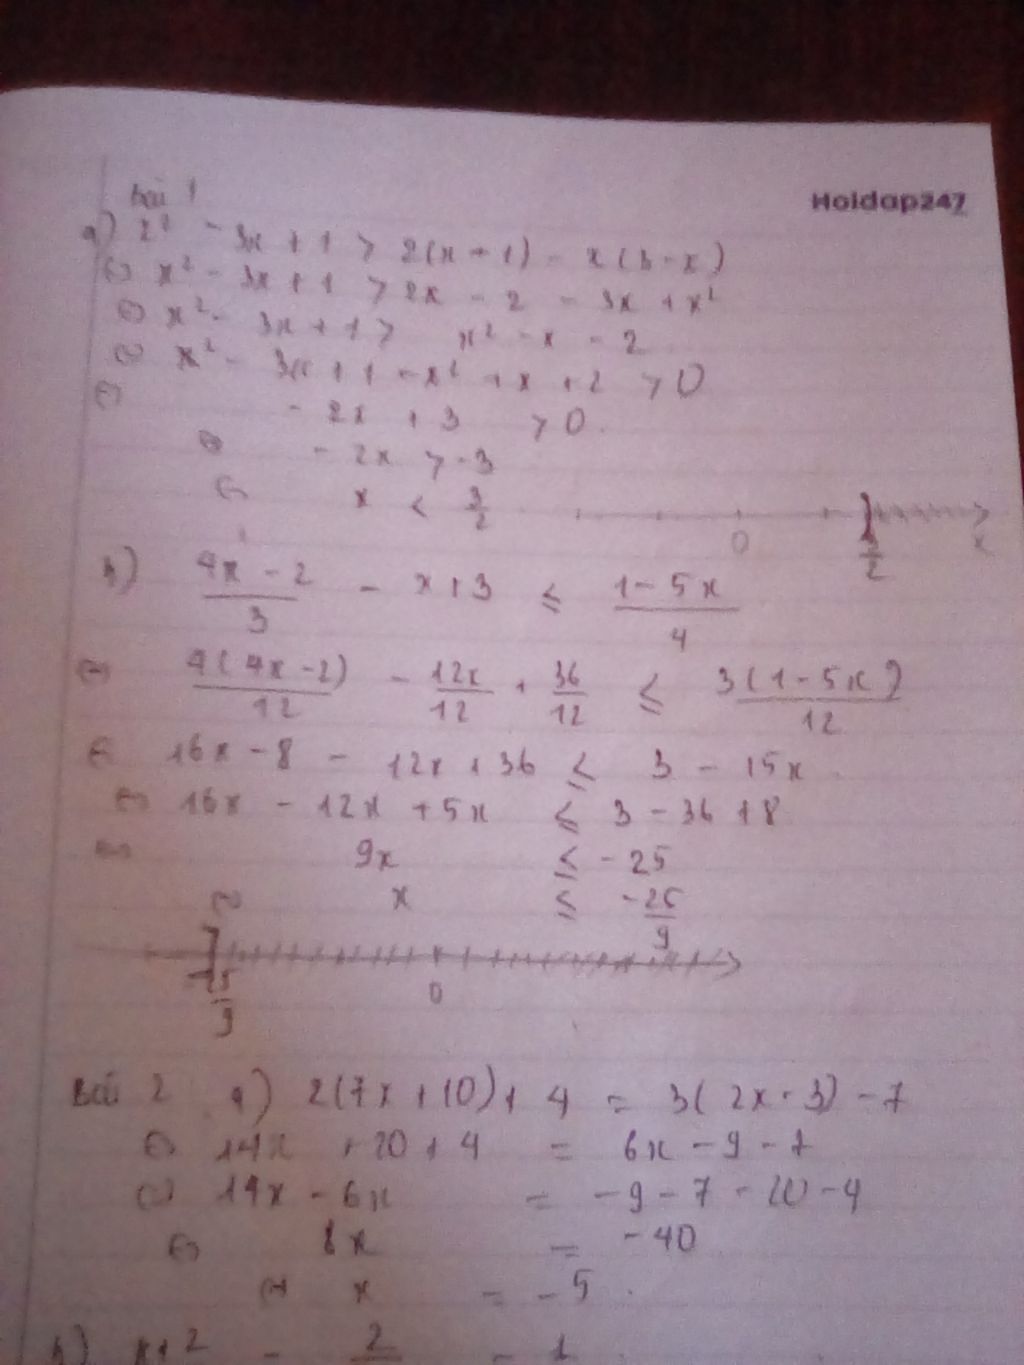 Bài 1
Hoidap247
a) x² - 3x + 1 > 2(x - 1) - x(3 - x)
⇔ x² - 3x + 1 > 2x - 2 - 3x + x²
⇔ x² - 3x + 1 > x² - x - 2
⇔ x² - 3x + 1 - x² + x + 2 > 0
⇔ - 2x + 3 > 0
⇔ - 2x > -3
⇔ x < 3/2
0 3/2 x
b) (4x - 2)/3 - x + 3 ≤ (1 - 5x)/4
⇔ 4(4x - 2)/12 - 12x/12 + 36/12 ≤ 3(1 - 5x)/12
⇔ 16x - 8 - 12x + 36 ≤ 3 - 15x
⇔ 16x - 12x + 5x ≤ 3 - 36 + 8
⇔ 9x ≤ - 25
x ≤ -25/9
-25/9 0
Bài 2 a) 2(7x + 10) + 4 = 3(2x - 3) - 7
⇔ 14x + 20 + 4 = 6x - 9 - 7
⇔ 14x - 6x = - 9 - 7 - 20 - 4
⇔ 8x = - 40
⇔ x = - 5
b) x + 2 - 2 - 1